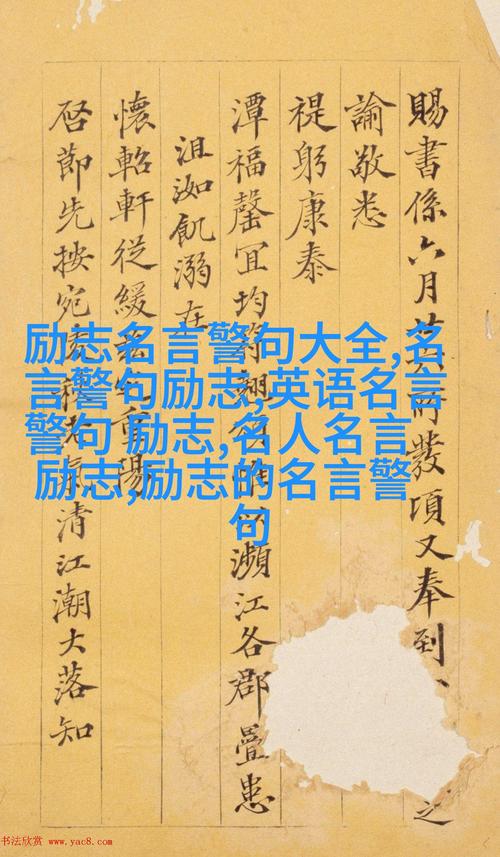 励志名言警句大全,名
言警句励志,英语名言
警句 励志,名人名言
励志,励志的名言警
句
賜書係六月發項又奉到之
諭敬悉
禔躬康泰
潭福罄宜均瀕江各郡疊患
沮洳飢溺在
懷軺軒従緩重陽
啓節先按宛清江潮大落知
书法欣赏 www.yac8.com